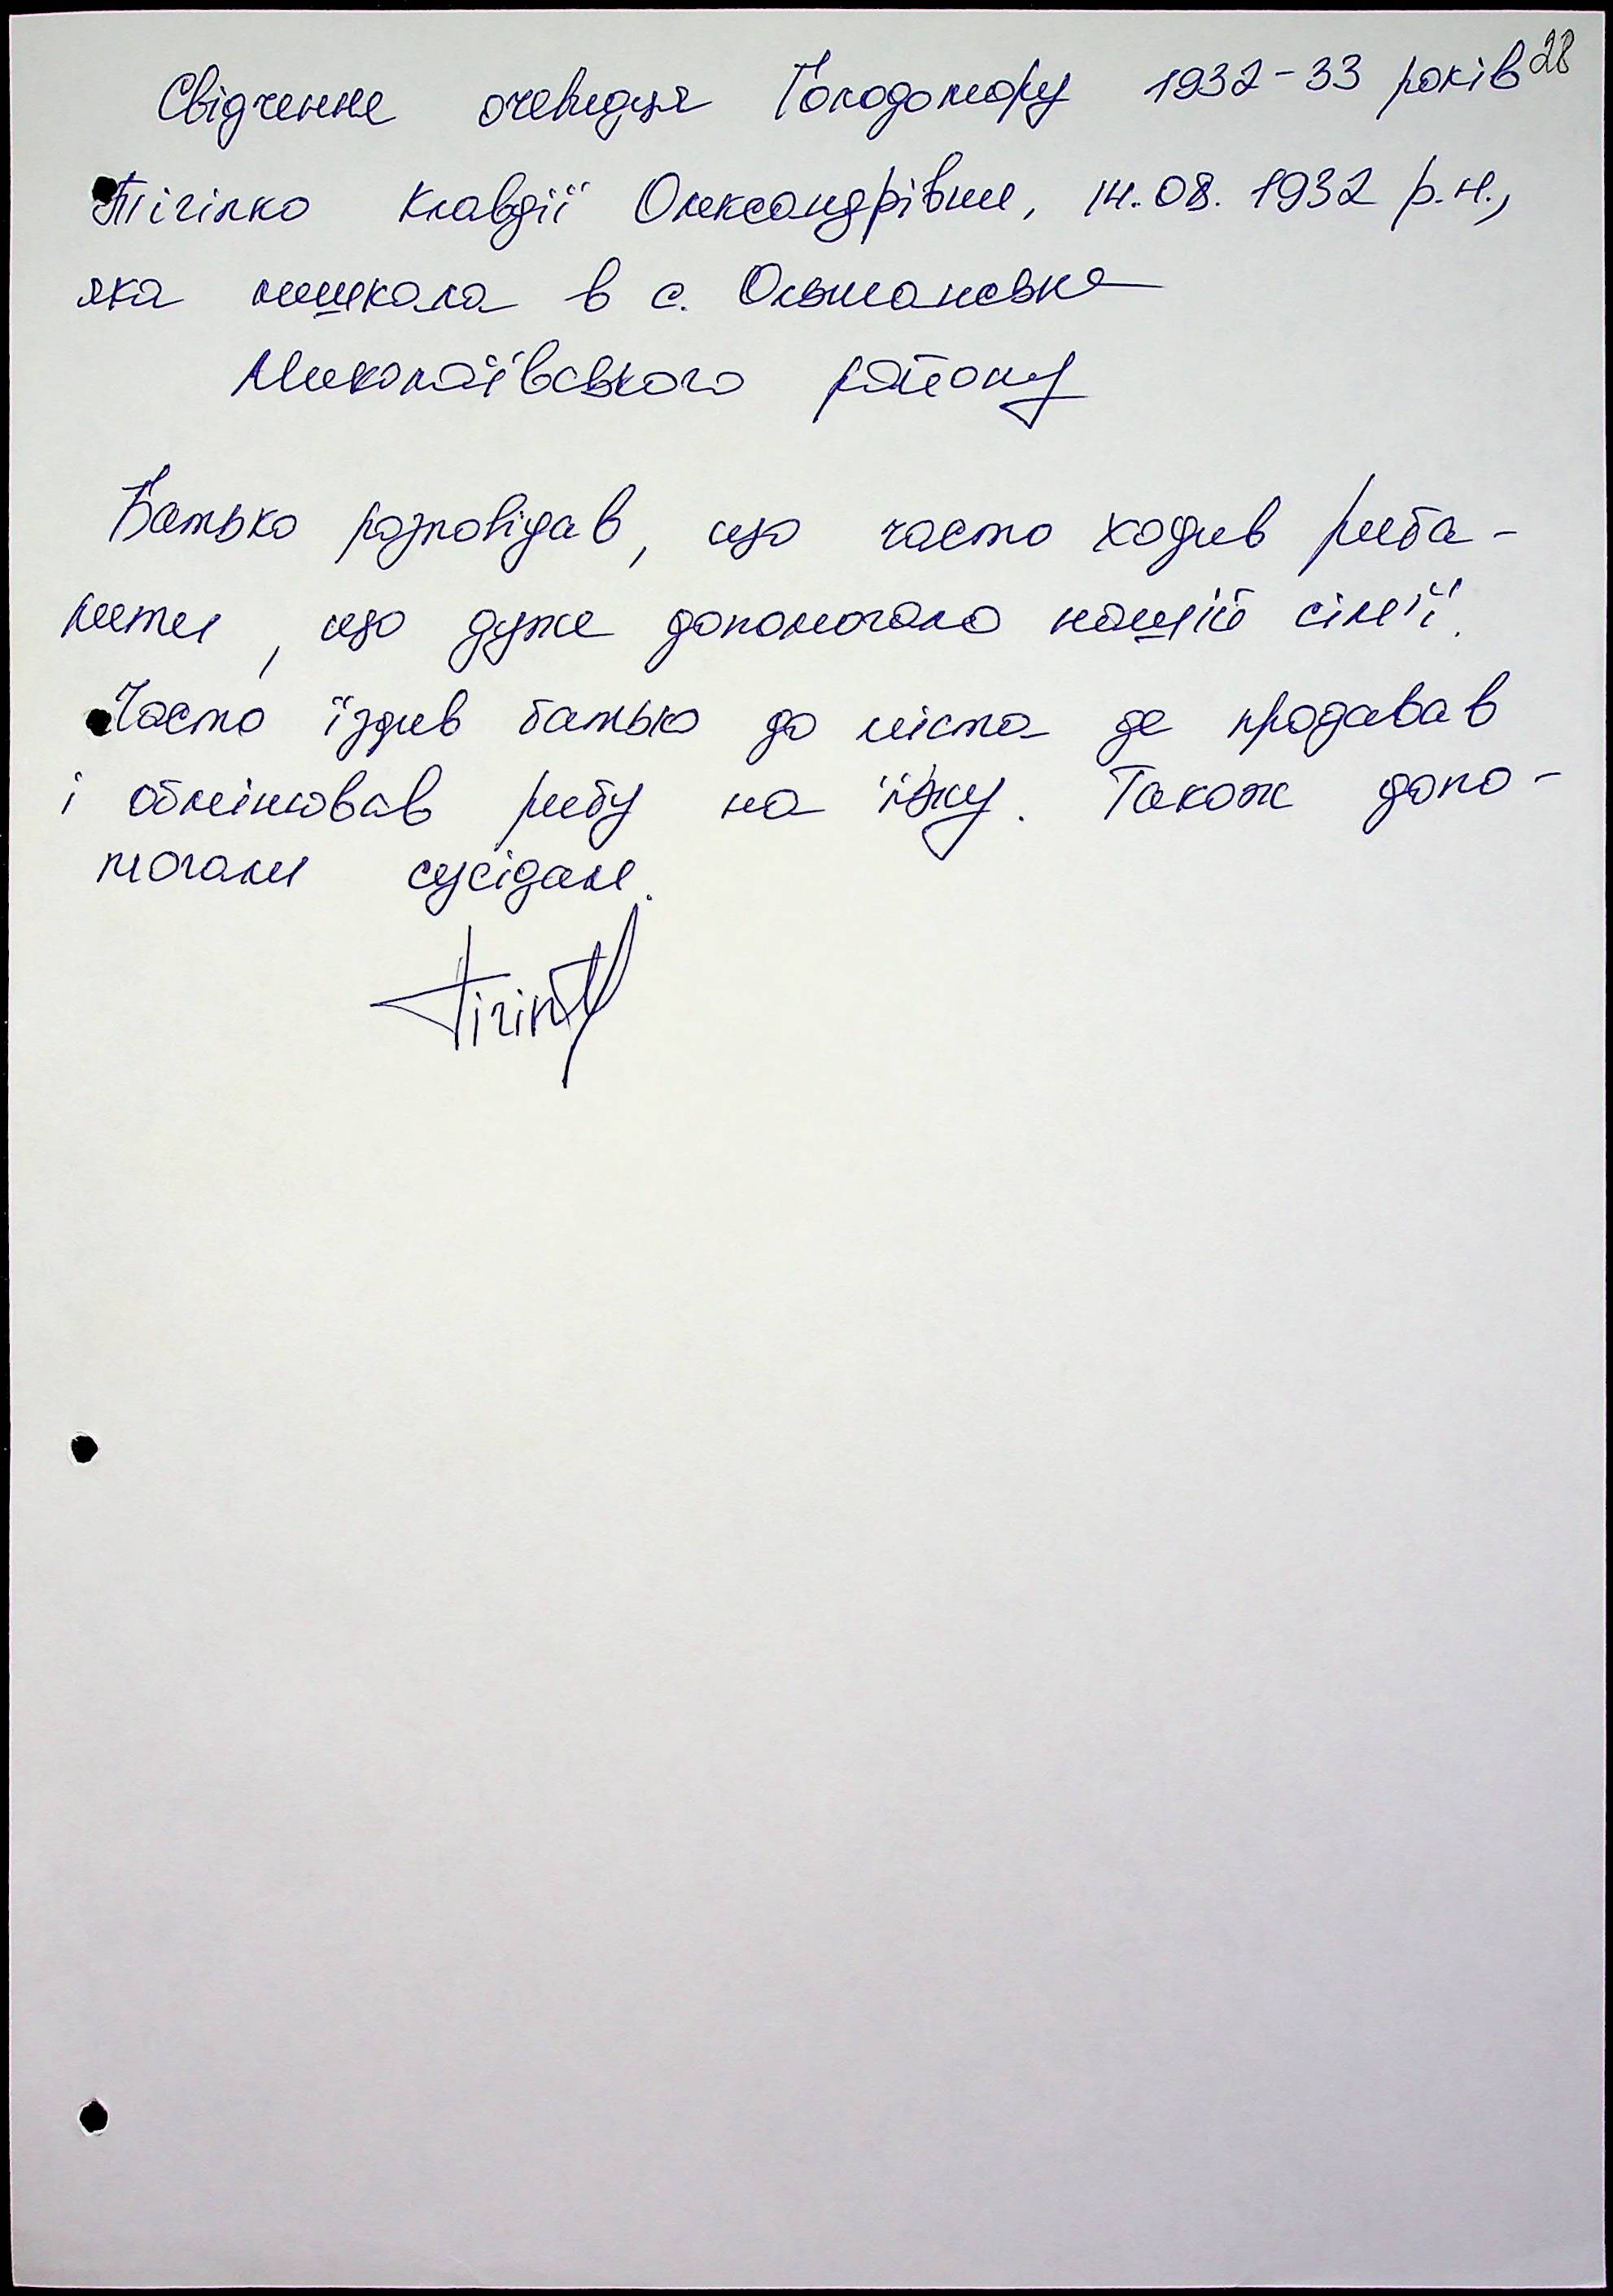 28
Свідчення очевидця Голодомору 1932-33 років
Тігілко Клавдії Олександрівни, 14.08.1932 р.н.,
яка мешкала в с. Ольшанське
Миколаївського району
Батько розповідав, що часто ходив риба-
лити, що дуже допомогало нашій сім'ї.
Часто їздив батько до міста де продавав
і обмінював рибу на їжу. Також допо-
могали сусідам.